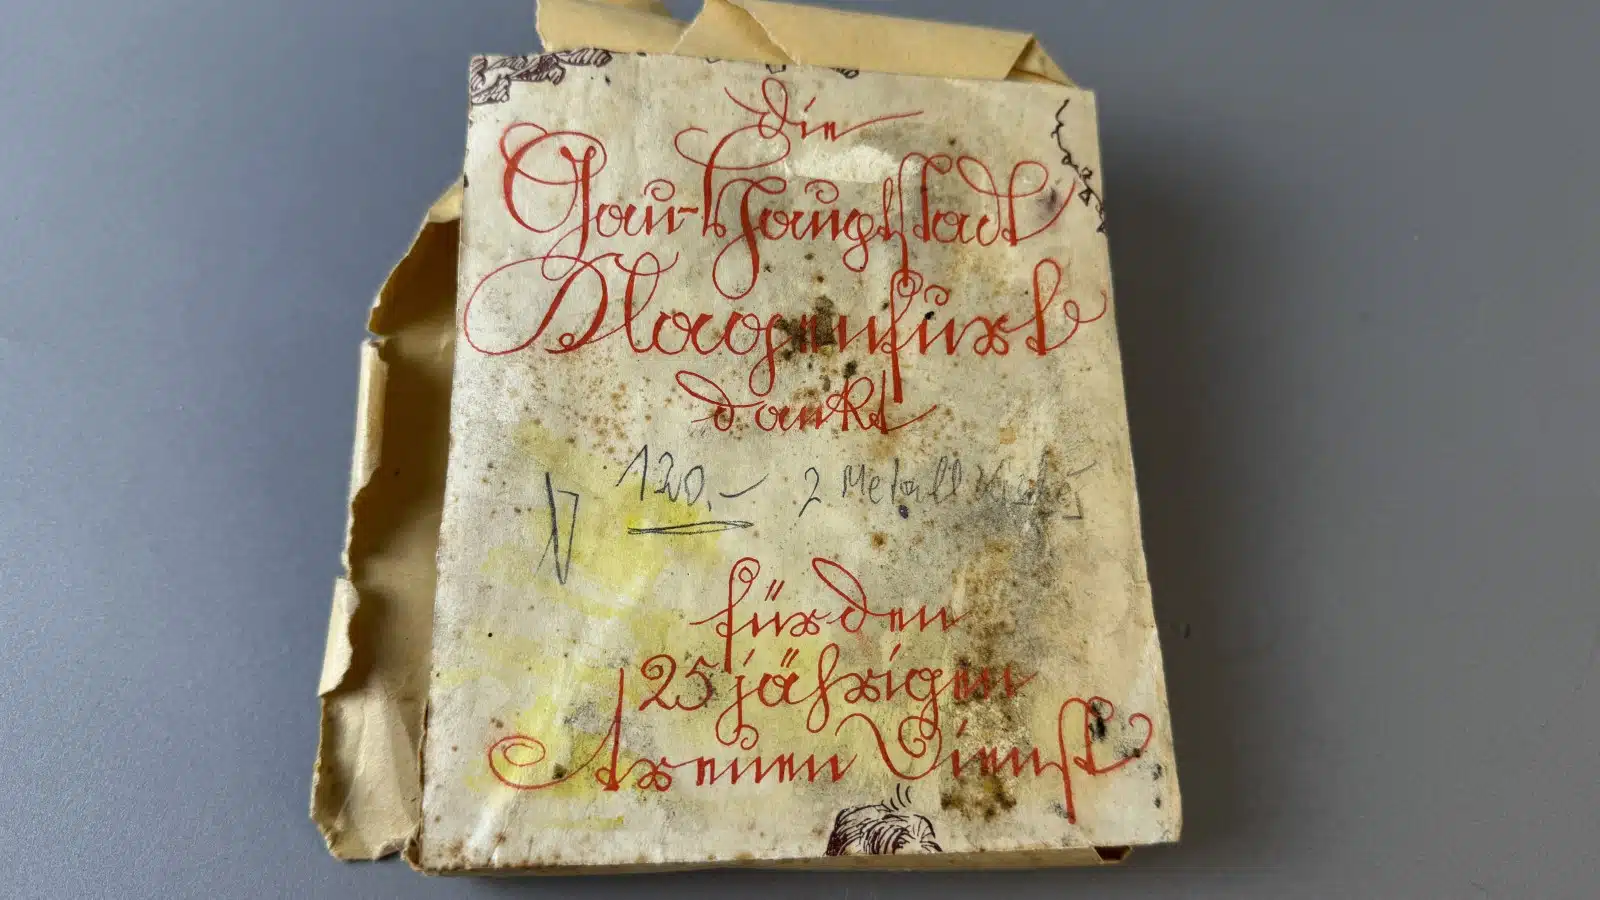 die
Gau-Hauptstadt
Klagenfurt
dankt
120,- 2 Metall
für den
25 jährigen
treuen Dienst